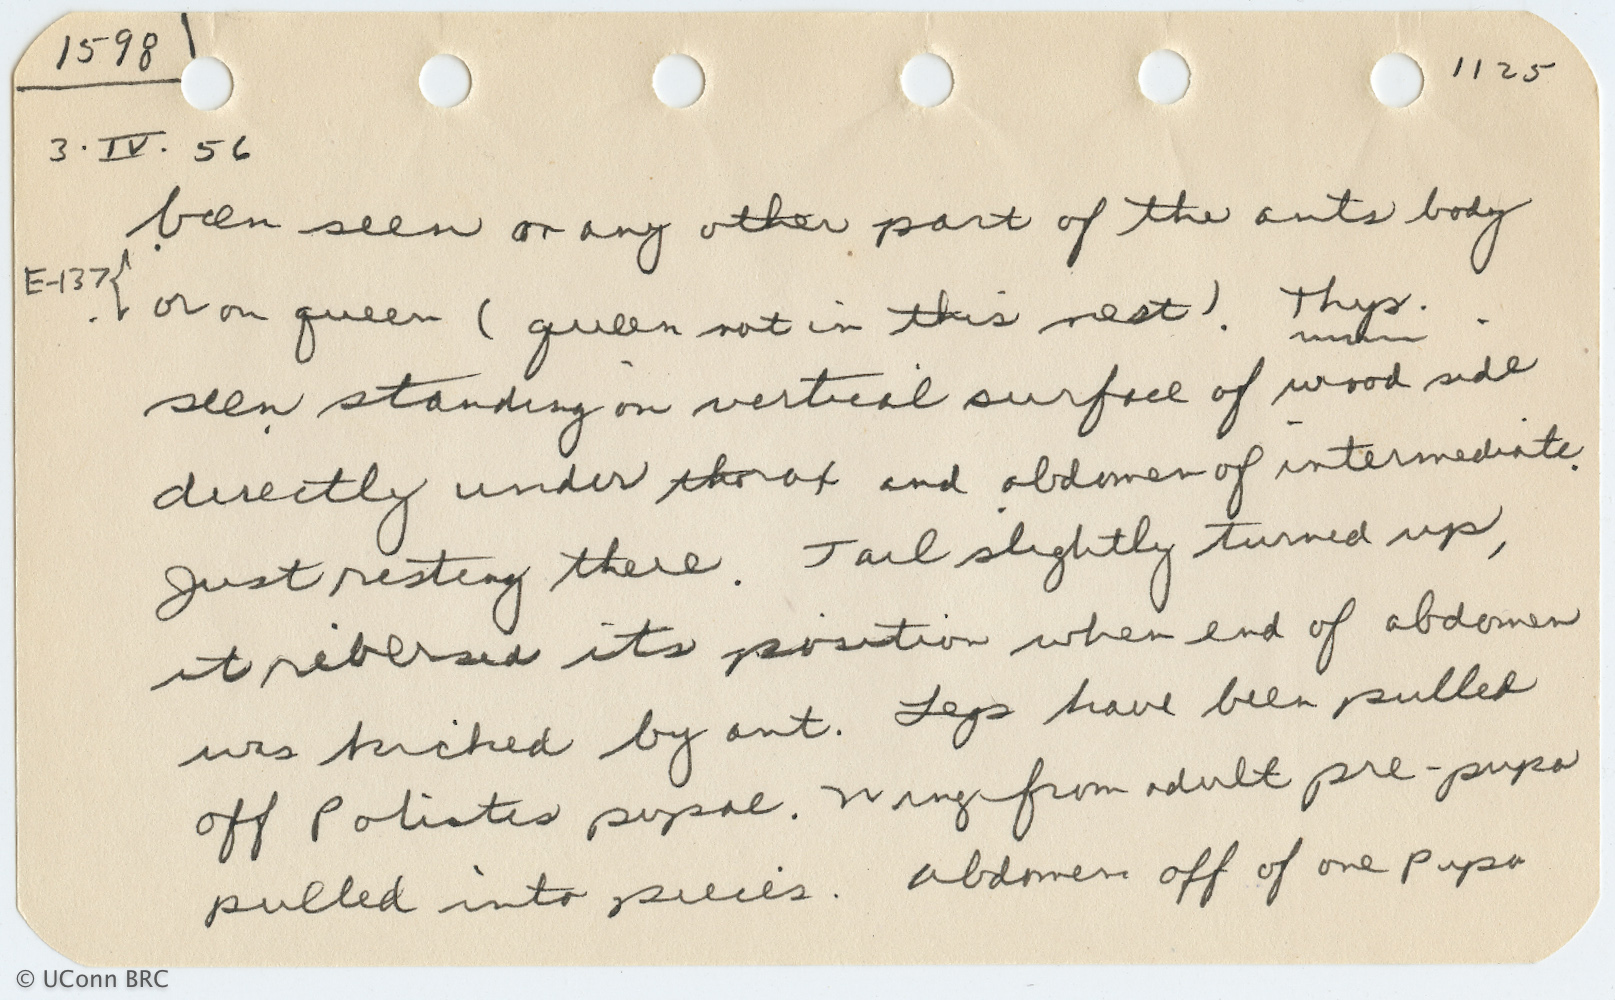 1598
1125
3. IV. 56
been seen or any other part of the ants body
E-137{ or on queen (queen not in this nest). Thys.
seen standing on vertical surface of wood side
directly under thorax and abdomen of intermediate.
Just resting there. Tail slightly turned up,
it reversed its position when end of abdomen
was kicked by ant. Legs have been pulled
off Polistes pupae. Wings from adult pre-pupa
pulled into pieces. Abdomen off of one pupa
© UConn BRC